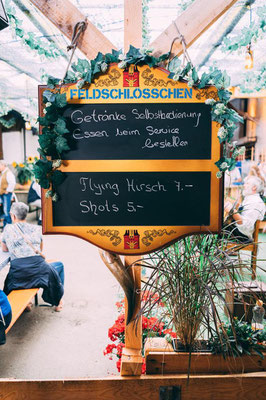 FELDSCHLÖSSCHEN
Getränke Selbstbedienung
Essen beim Service
bestellen
Flying Hirsch 7.-
Shots 5.-